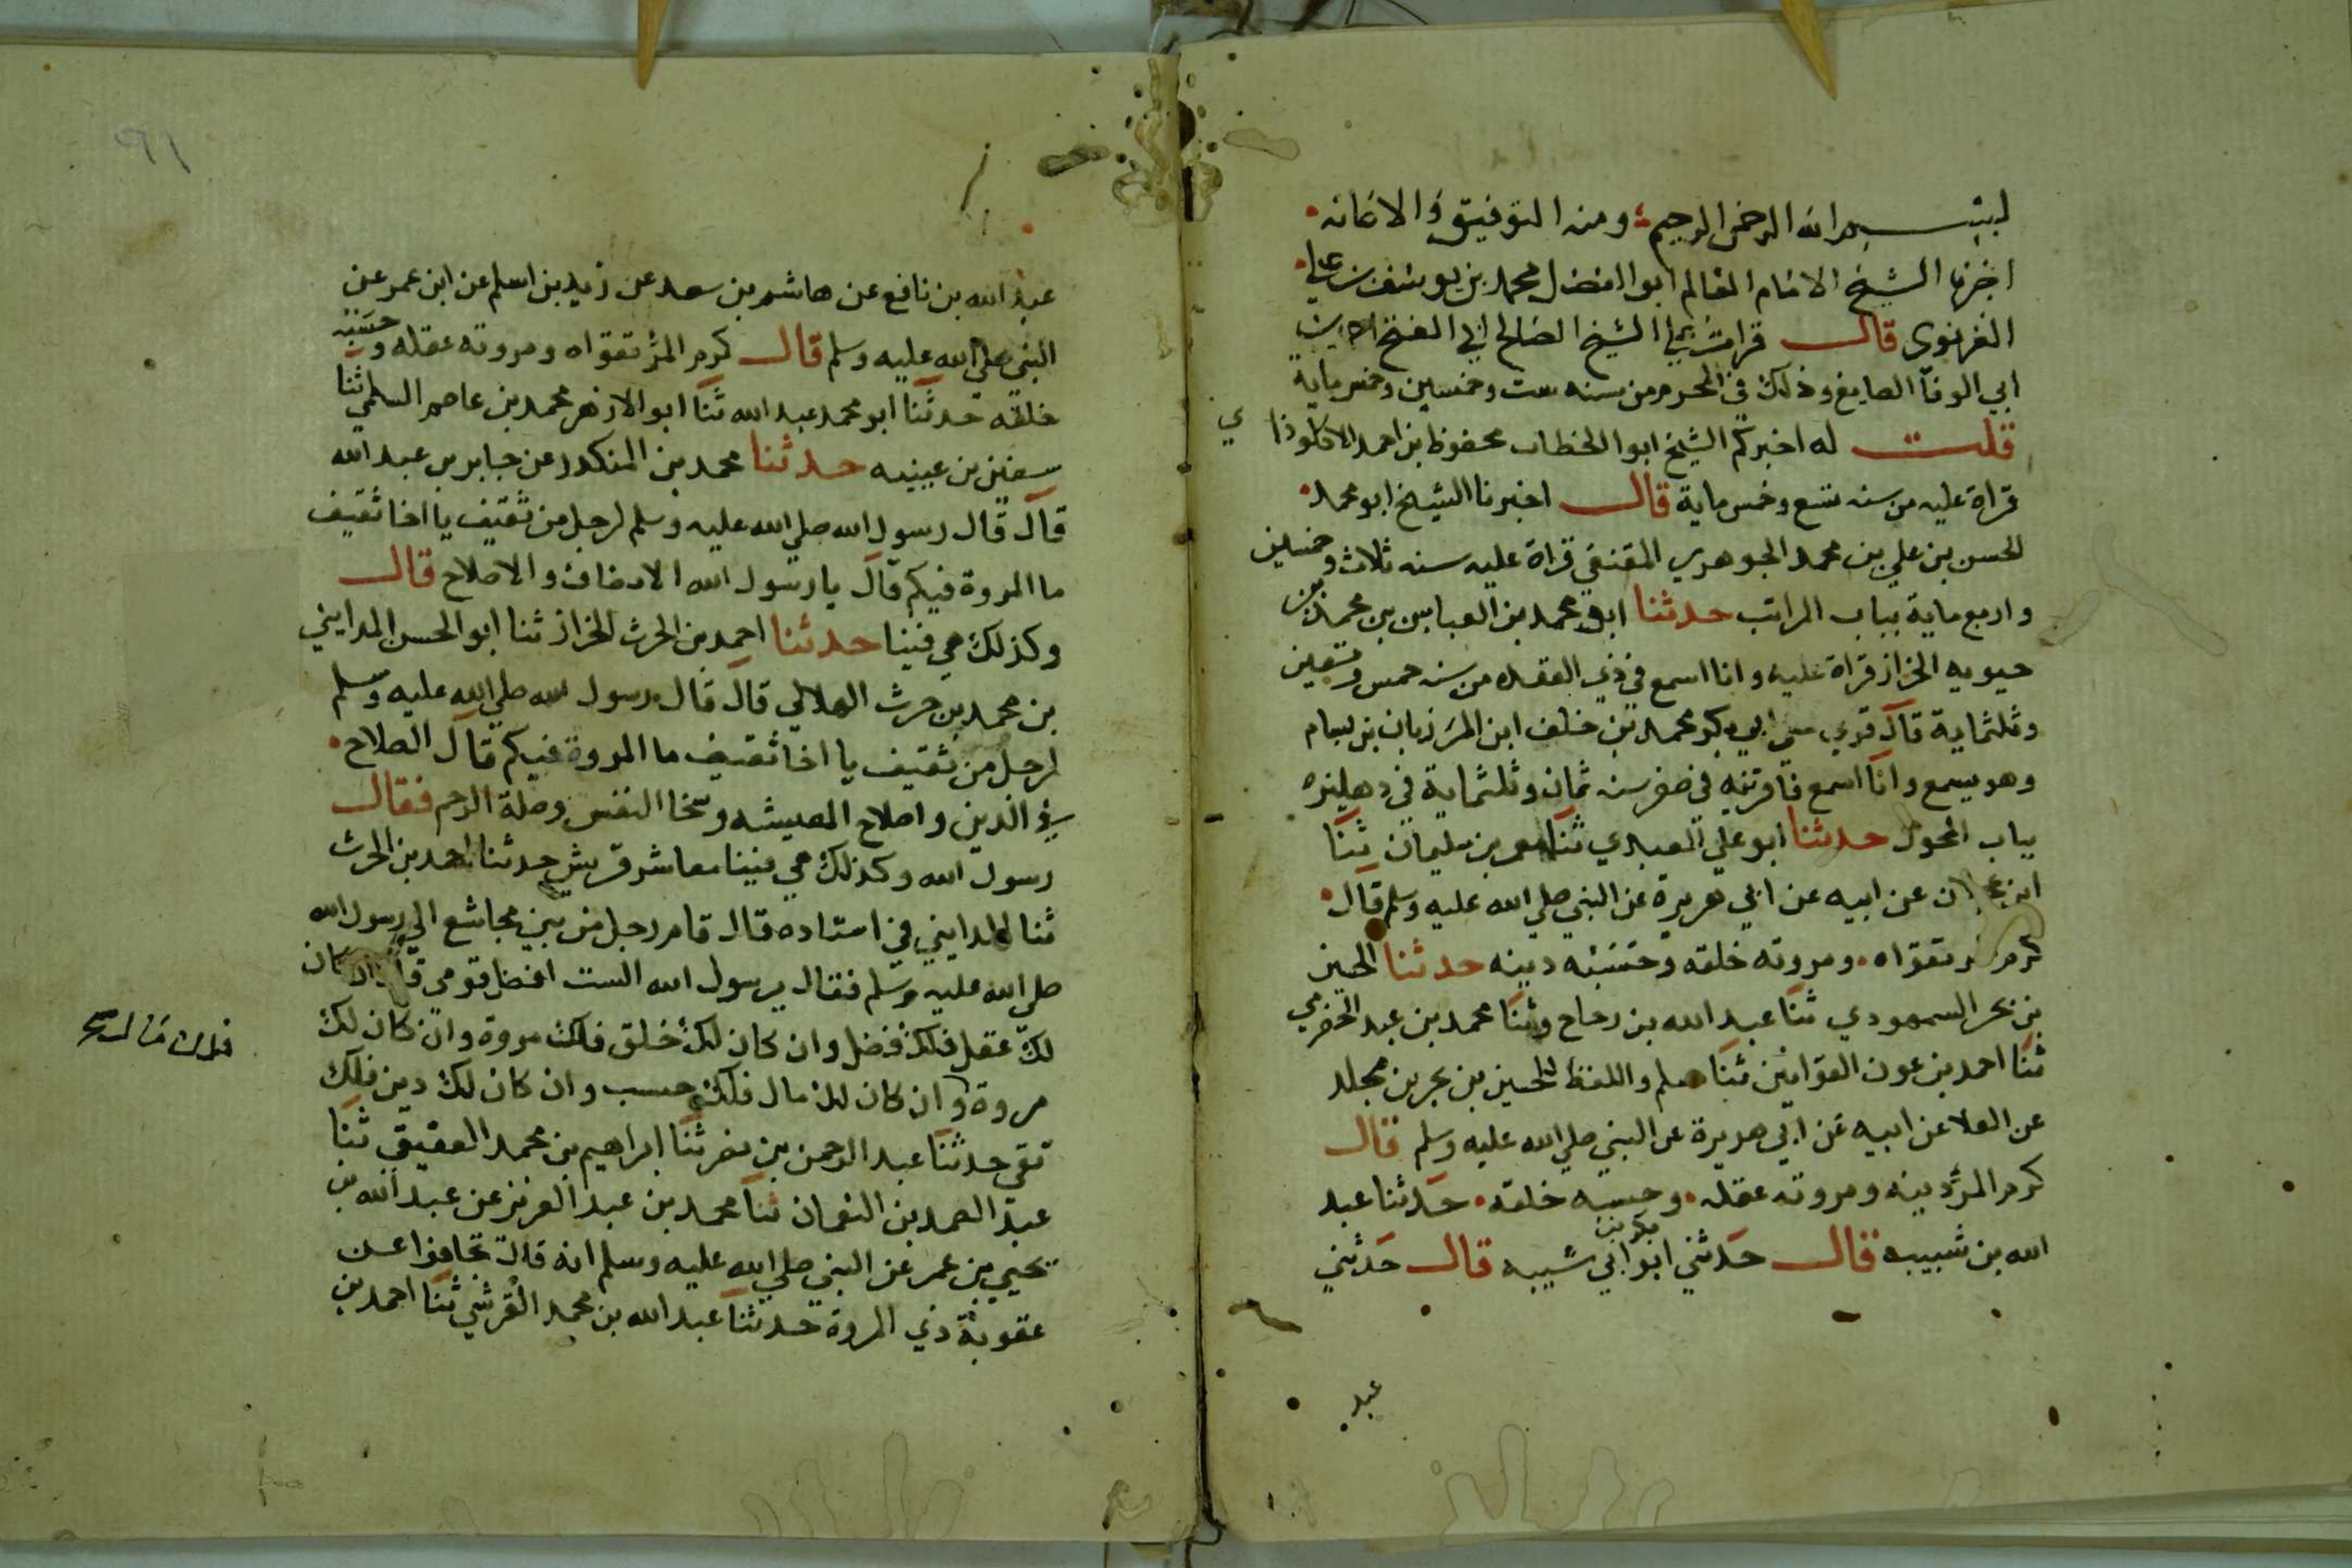 بسم الله الرحمن الرحيم ومنه التوفيق والاعانه
اخبرنا الشيخ الامام العالم ابو الفضل محمد بن يوسف بن علي
الغزنوي قال قرات علي الشيخ الصالح ابي الفتح
ابي الوفا الصايغ وذلك في المحرم من سنه ست وخمسين وخمس ماية
قلت له اخبركم الشيخ ابو الخطاب محفوظ بن احمد الكلوذاي
قراة عليه من سنه تسع وخمس ماية قال اخبرنا الشيخ ابو محمد
الحسن بن علي بن محمد الجوهري المقنعي قراة عليه سنه ثلاث وخمسين
واربع ماية بباب المراتب حدثنا ابو محمد بن العباس بن محمد بن
حيويه الخزاز قراة عليه وانا اسمع في ذي القعده من سنه خمس وسبعين
وثلثماية قال قري علي ابي بكر محمد بن خلف ابن المرزبان بن بسام
وهو يسمع وانا اسمع فاقر به في صفر سنه ثمان وثلثماية في دهليزه
بباب المحول حدثنا ابو علي العبدي ثنا معمر بن سليمان ثنا
ابن عجلان عن ابيه عن ابي هريرة عن النبي صلي الله عليه وسلم قال
كرم تقواه ومروته خلقه وحسبه دينه حدثنا الحسين
بن بحر السمهودي ثنا عبد الله بن رحاح وثنا محمد بن عبد الحضرمي
ثنا احمد بن عون القواس ثنا مسلم واللفظ للحسين بن بحر بن مجلد
عن العلا عن ابيه عن ابي هريرة عن النبي صلي الله عليه وسلم قال
كرم المرؤ دينه ومروته عقله وحسبه خلقه حدثنا عبد
الله بن شبيب قال حدثني ابو بكر بن ابي شيبه قال حدثني
عبد
٩١
عبد الله بن نافع عن هاشم بن سعد عن زيد بن اسلم عن ابن عمر عن
النبي صلي الله عليه وسلم قال كرم المرؤ تقواه ومروته عقله وحسبه
خلقه حدثنا ابو محمد عبد الله ثنا ابو الازهر محمد بن عاصم السلمي ثنا
سفين بن عيينه حدثنا محمد بن المنكدر عن جابر بن عبد الله
قال قال رسول الله صلي الله عليه وسلم لرجل من ثقيف يا اخا ثقيف
ما المروة فيكم قال يا رسول الله الانصاف والاصلاح قال
وكذلك هي فينا حدثنا احمد بن الحرث الخزاز ثنا ابو الحسن المدايني
بن محمد بن حرث الهلالي قال قال رسول الله صلي الله عليه وسلم
لرجل من ثقيف يا اخا ثقيف ما المروة فيكم قال الصلاح
في الدين واصلاح المعيشه وسخا النفس وصلة الرحم فقال
رسول الله وكذلك هي فينا معاشر قريش حدثنا احمد بن الحرث
ثنا المدايني في اسناده قال قام رجل من بني مجاشع الي رسول الله
صلي الله عليه وسلم فقال يرسول الله الست افضل قومي قال ان كان
لك عقل فلك فضل وان كان لك خلق فلك مروة وان كان لك
مروة وان كان لك مال فلك حسب وان كان لك دين فلك
تقي حدثنا عبد الرحمن بن نصر ثنا ابراهيم بن محمد العقيقي ثنا
عبد الصمد بن النعمان ثنا محمد بن عبد العزيز عن عبد الله بن
يحيي بن عمر عن النبي صلي الله عليه وسلم انه قال تجافوا عن
عقوبة ذي المروة حدثنا عبد الله بن محمد القرشي ثنا احمد بن